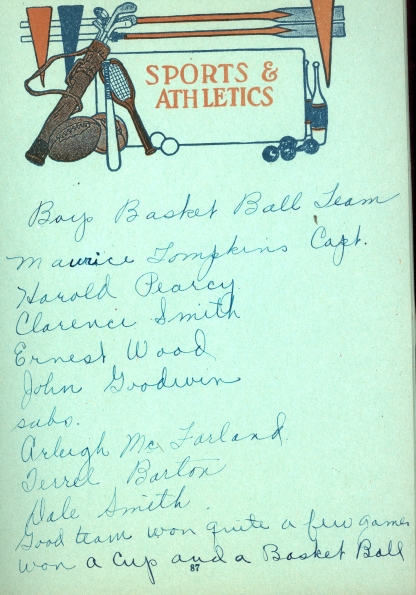 SPORTS &
ATHLETICS
Boys Basket Ball Team
Maurice Tompkins Capt.
Harold Pearcy
Clarence Smith
Ernest Wood
John Goodwin
subs.
Arleigh Mc Farland.
Terrel Barton
Dale Smith.
Good team won quite a few games
won a Cup and a Basket Ball
87